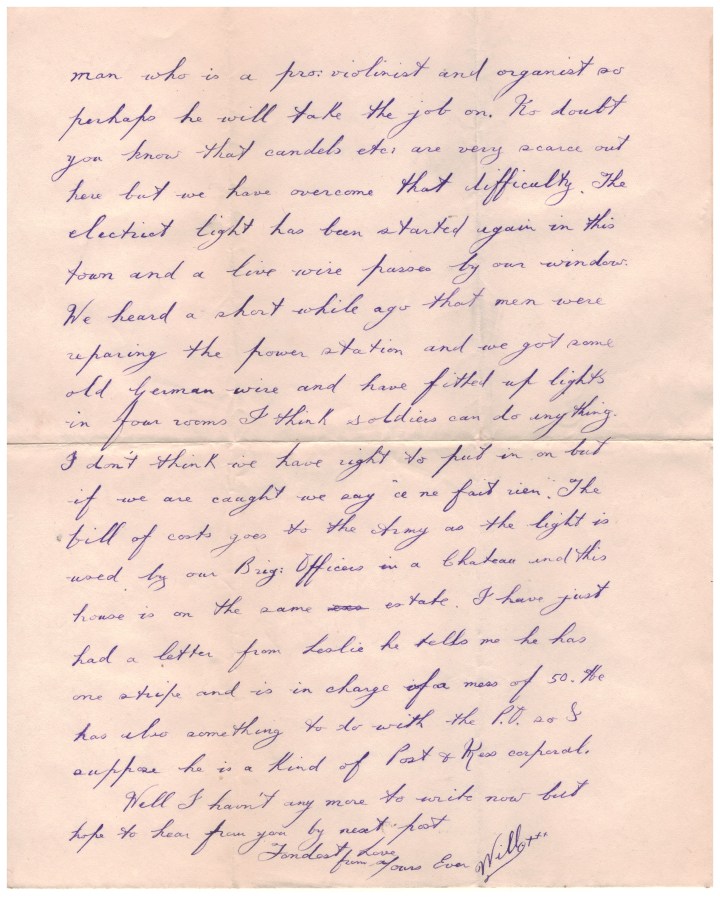 man who is a pro: violinist and organist so
perhaps he will take the job on. No doubt
you know that candels etc: are very scarce out
here but we have overcome that difficulty. The
electrict light has been started again in this
town and a live wire passes by our window.
We heard a short while ago that men were
reparing the power station and we got some
old German wire and have fitted up lights
in four rooms I think soldiers can do anything.
I don't think we have right to put in on but
if we are caught we say "ce ne fait rien". The
bill of costs goes to the Army as the light is
used by our Brig: Officers in a Chateau and this
house is on the same estate. I have just
had a letter from Leslie he tells me he has
one stripe and is in charge of a mess of 50. He
has also something to do with the P.O. so I
suppose he is a kind of Post & Mess corporal.
Well I havn't any more to write now but
hope to hear from you by next post
Fondest Love
from Yours Ever Will xxx